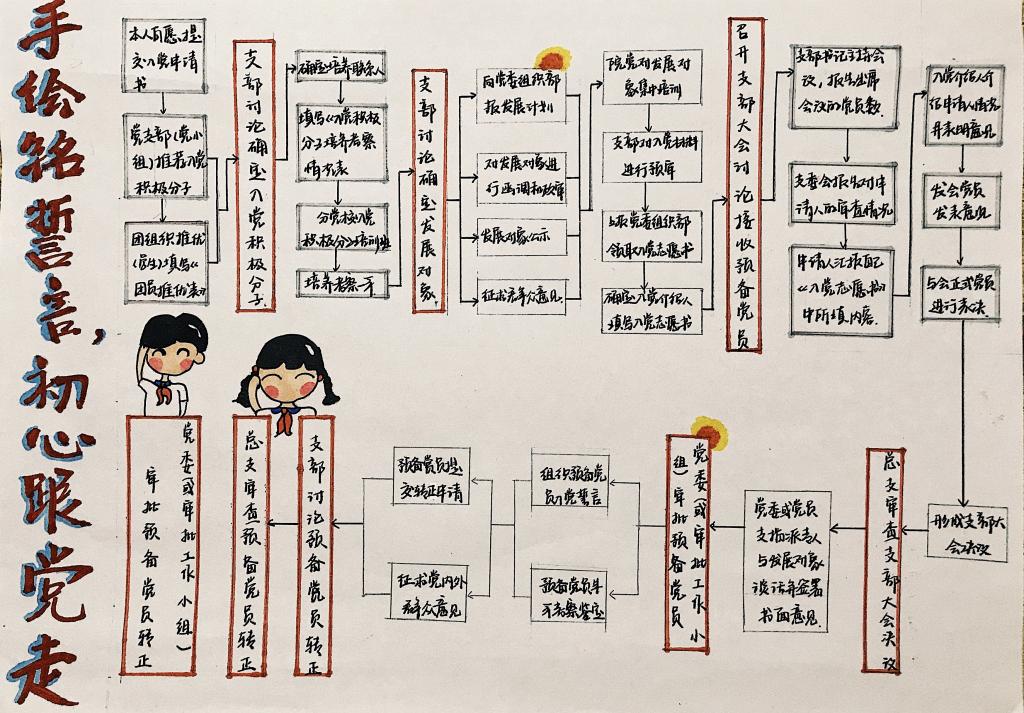 手绘铭誓言,初心跟党走
本人自愿提
交入党申请
书
党支部(党小
组)推荐入党
积极分子
团组织推优
团员推优表》
支部讨论确定入党积极分子
确定培养联系人
填写《入党积极
分子培养考察
情况表
分党校入党
积极分子培训班
培养考察一年
支部讨论确定发展对象
向党委组织部
报发展计划
对发展对象进
行函调和政审
发展对象公示
征求党群众意见
院党对发展对
象集中培训
支部对入党材料
进行预审
上报党委组织部
领取入党志愿书
确定入党介绍人
填写入党志愿书
召开支部大会讨论接收预备党员
支部书记主持会
议,报告出席
会议的党员数.
支委会报告对申
请人的审查情况
申请人汇报自己
《入党志愿书》
中所填内容.
入党介绍人介
绍申请人情况
并表明意见
发会党员
发表意见
与会正式党员
进行表决.
形成支部大
会决议
总支审查支部大会决议
党委或党员
支指派专人
与发展对象
谈话并签署
书面意见
党委(或审批工作小
组)审批预备党员
组织预备党
员入党誓言
预备党员半
年考察鉴定
预备党员提
交转正申请
征求党内外
群众意见
支部讨论预备党员转正
总支审查预备党员转正
党委(或审批工作小组)
审批预备党员转正